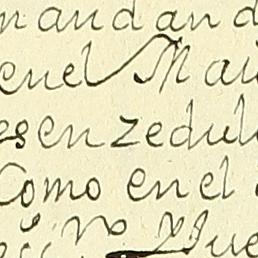 mandan d
en el Mai
es en zedul
Como en el
No Que